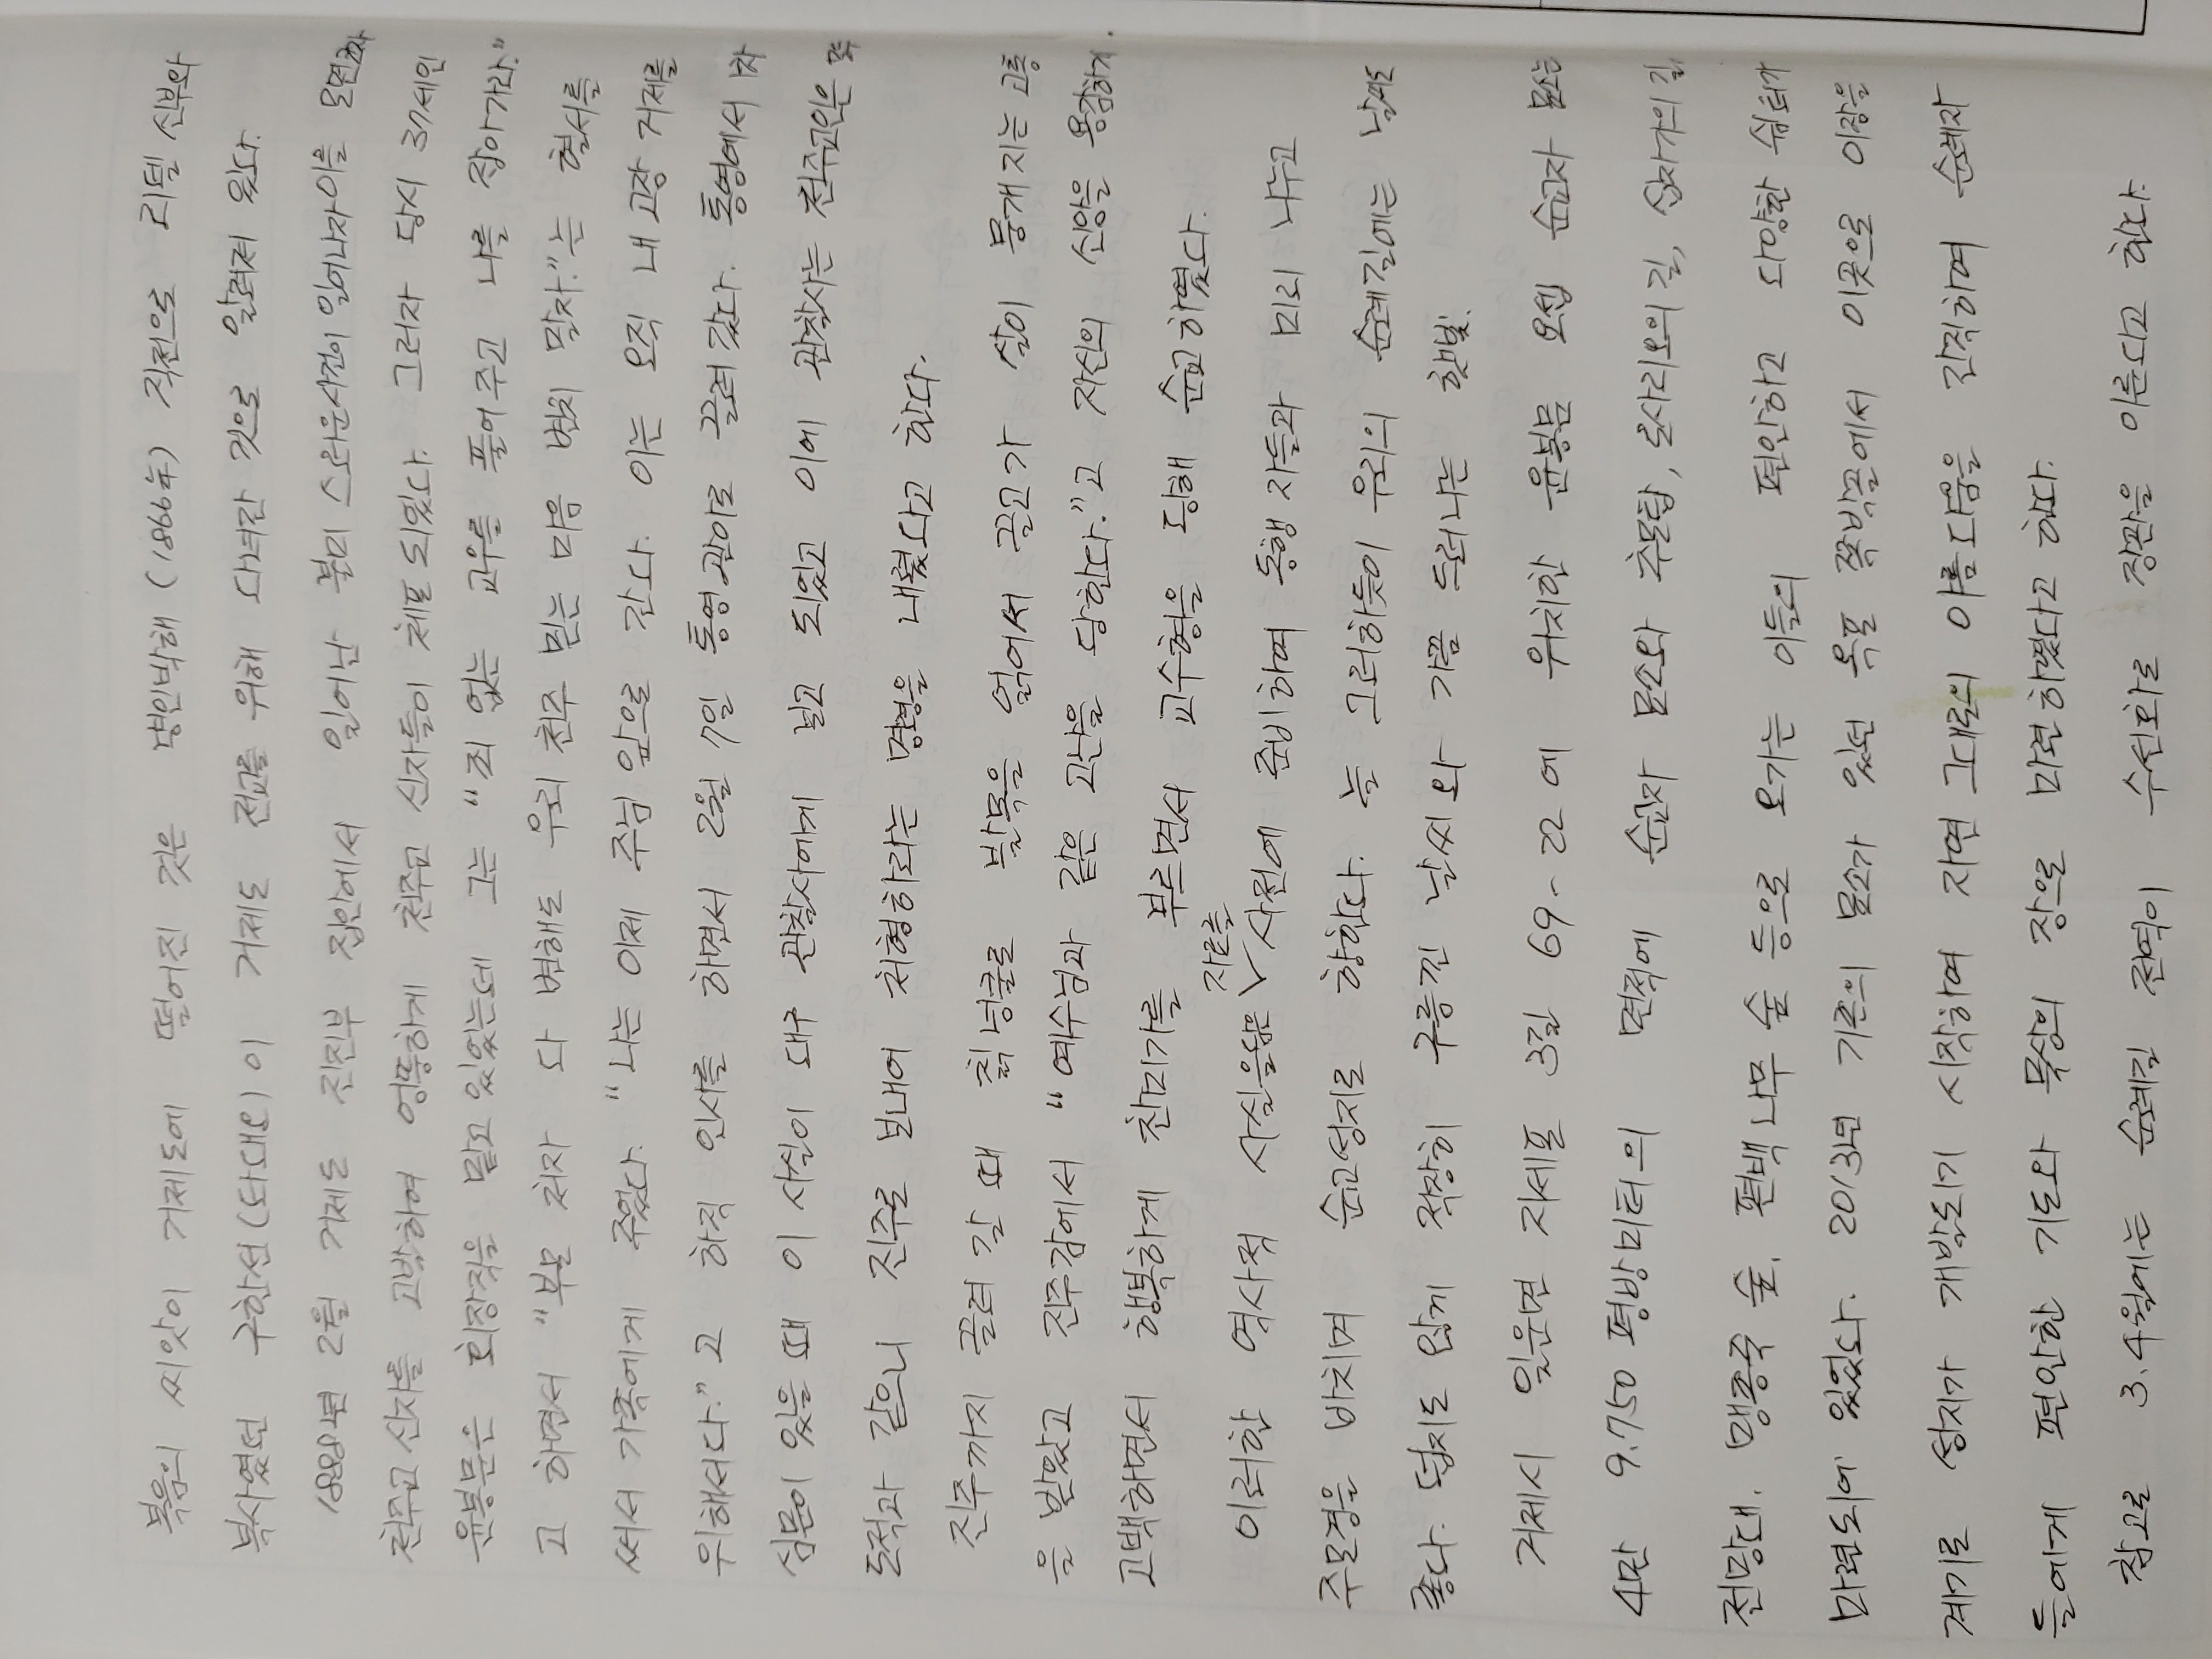 복음의 씨앗이 거제도에 떨어진 것은 병인박해 (1866年) 직전으로 리델 신부와
복사였던 구한선(타대오)이 거제도 전교를 위해 다녀간 것으로 알려져 있다.
1888년 2월 거제도 진진부 집안에서 일어난 불미스러운사건이 일어나자이를 모면코자
천주교 신자를 고발하여 엉뚱하게 천주교 신자들이 체포 되었다. 그러자 당시 37세인
윤봉문은 회장직을 맡고 있었는데 그는 "죄 없는 교우를 풀어주고 나를 잡아가라."
고 하면서 "부모 처자 다 변해도 우리 천주 믿는 마음 변치 말자."는 혈서를
써서 가족에게 주었다. "나는 이제 주님 앞으로 간다. 이는 오직 내 고장 거제를
위해서다." 고 하직 인사를 하면서 2월 7일 통영 관아로 끌려 갔다. 통영에서 1차
심문이 있을 때 이 사실이 대구 관찰사에게 보고 되었고 이에 관찰사는 천주교인은
도적과 같으니 진주로 보내어 처형하라는 명령을 내렸다고 한다.
진주까지 끌려 갈 때 칡넝쿨로 발목을 얽어서 끌고가 살이 뭉개지는 고통
을 받았고 진주감에서 "예수님과 같은 고난을 당한다."고 자신의 신앙을 용감하게
고백하면서 행복하게 찬미가를 부르면서 교수형을 당해 순교하였다.
이러한 역사적 사실을담은 자료를 사전에 준비하며 동행 자들과 미리 나누고
주모경을 바치며 순교성지로 향한다. 늘 그러하듯이 우리의 순례길에는 날씨도
좋다. 덥지도 않게 적당히 구름낀 날씨와 가끔 드러나는 햇빛.
거제시 일운면 지세포 3길 69-22에 위치한 윤봉문 요셉 순교자 묘소는
4만 9.750 평방미터의 면적에 순교자 묘소와 추모탑, 로사리오의 길, 십자가의 길
전망대. 맹종죽 숲. 편백나무 숲 등으로 오가는 이들의 편안하고 다양한 쉼터가
마련되어 있었다. 2013년 기존의 묘소가 있던 옥포 쪽박골에서 이곳으로 이장을
계기로 성지가 개발되기 시작하여 자연 그대로의 아름다움을 간직하며 순례자
들에게 편안한 기도와 묵상의 장으로 마련하였다고 한다.
참고로 3.4월에는 순례길 전역이 수선화로 장관을 이룬다고 한다.